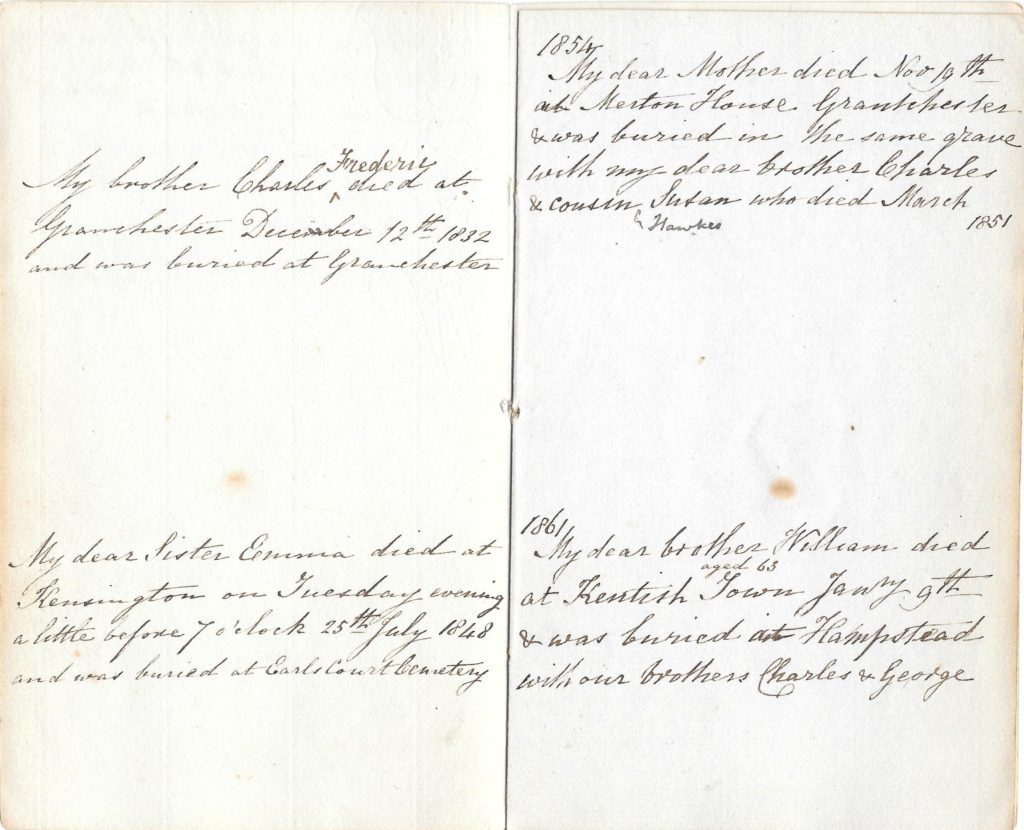 My brother Charles ^ Frederic died at
Granchester December 12th 1832
and was buried at Granchester
My dear Sister Emma died at
Kensington on Tuesday evening
a little before 7 o'clock 25th July 1848
and was buried at Earls Court Cemetery
1854
My dear Mother died Nov 19th
at Merton House Grantchester
& was buried in the same grave
with my dear brother Charles
& cousin Susan who died March
Hawkes 1851
1861
My dear brother William died
aged 63
at Kentish Town Janry 9th
& was buried at Hampstead
with our brothers Charles & George